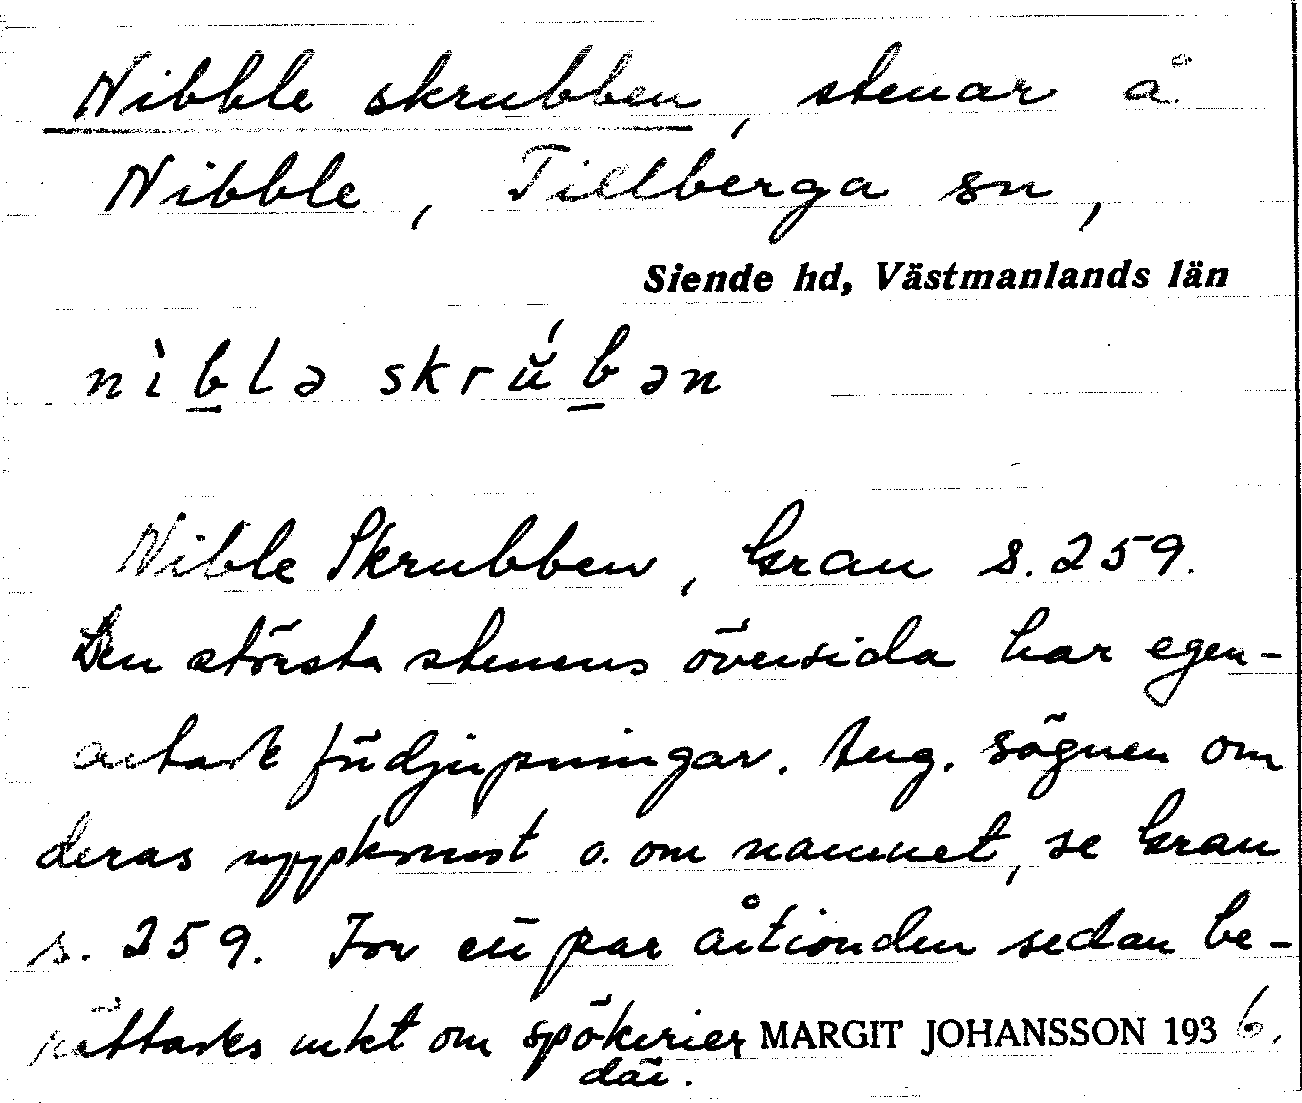 Nibble skrubben, stenar å
Nibble, Tillberga sn,
Siende hd, Västmanlands län
nìblə skrŭ́bən
Nible Skrubben, Grau s. 259.
Den största stenens översida har egen-
artade fördjupningar. Ang. sägnen om
deras uppkomst o. om namnet, se Grau
s. 259. För ett par årtionden sedan be-
rättades mkt om spökerier MARGIT JOHANSSON 1936.
där.